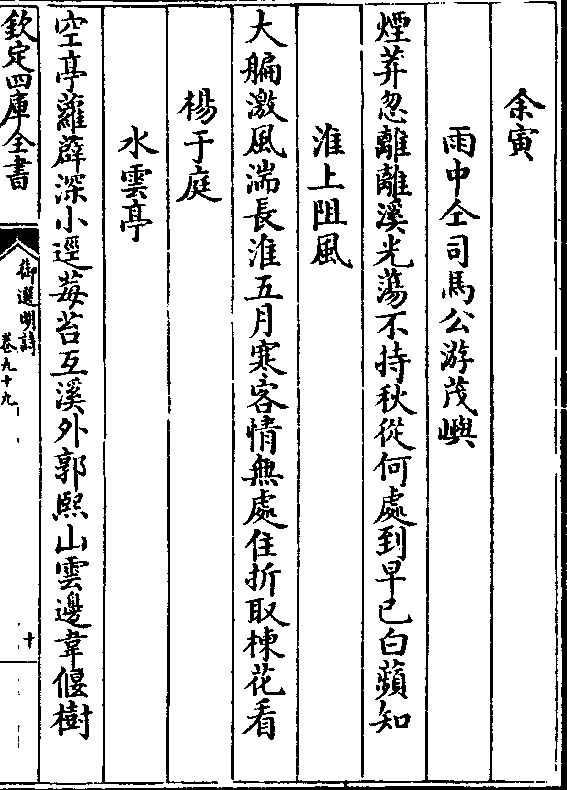 余寅
雨中仝司馬公游茂嶼
煙莽忽離離溪光蕩不持秋從何處到早已白蘋知
淮上阻風
大艑激風湍長淮五月寒客情無處住折取楝花看
楊于庭
水雲亭
空亭蘿薜深小逕莓苔互溪外郭熙山雲邊韋偃樹
欽定四庫全書
御選明詩
卷九十九
十